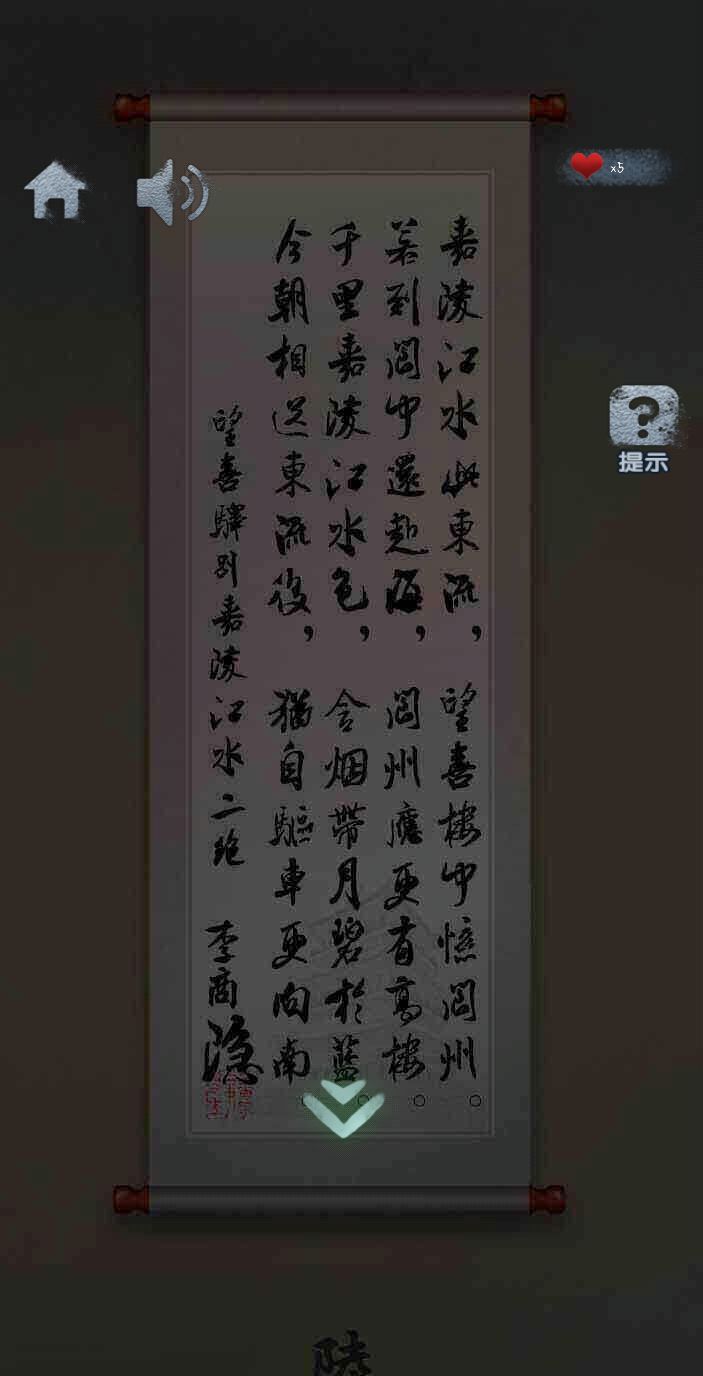 x5
提示
嘉陵江水此東流，望喜樓中憶閬州
若到閬中還赴海，閬州應更有高樓
千里嘉陵江水色，含烟帶月碧於藍
今朝相送東流後，猶自驅車更向南
望喜驛別嘉陵江水二絶 李商隐